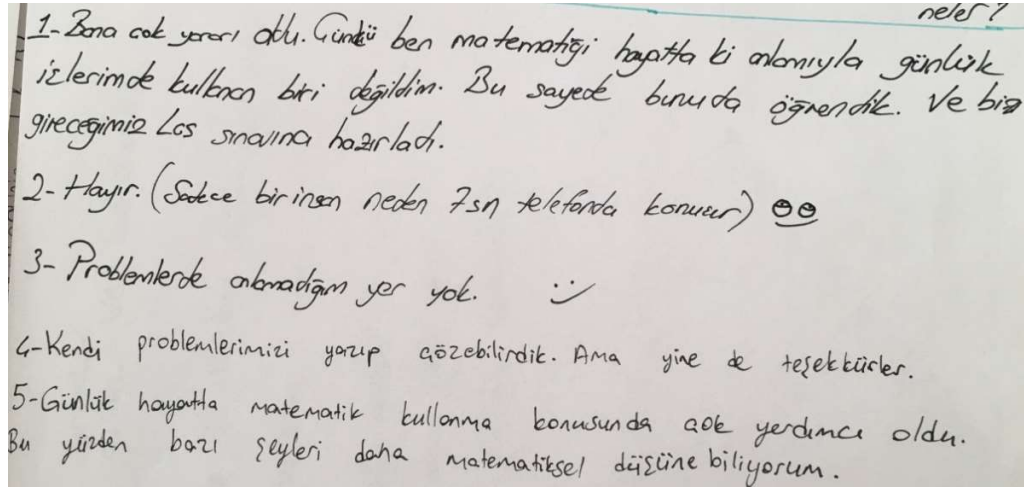 neler?
1- Bana çok yararı oldu. Çünkü ben matematiği hayatta ki anlamıyla günlük
işlerimde kullanan biri değildim. Bu sayede bunuda öğrendik. Ve biz
gireceğimiz LGS sınavına hazırladı.
2- Hayır. (Sadece bir insan neden 7sn telefonda konuşur)
3- Problemlerde anlamadığım yer yok.
4- Kendi problemlerimizi yazıp çözebilirdik. Ama yine de teşekkürler.
5- Günlük hayatta matematik kullanma konusunda çok yardımcı oldu.
Bu yüzden bazı şeyleri daha matematiksel düşüne biliyorum.